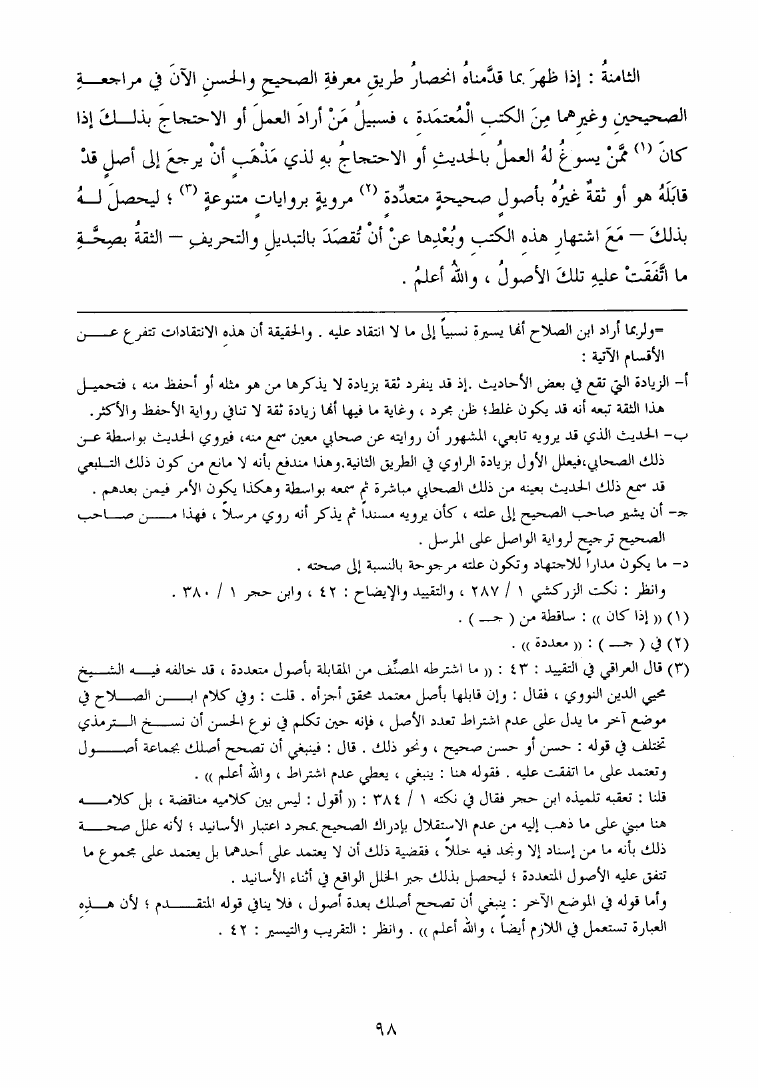 الثامنةُ : إذا ظهرَ بما قدَّمناهُ انحصارُ طريقِ معرفةِ الصحيحِ والحسنِ الآنَ في مراجعــةِ
الصحيحينِ وغيرِهما مِنَ الكتبِ الْمُعتمَدةِ ، فسبيلُ مَنْ أرادَ العملَ أو الاحتجاجَ بذلــكَ إذا
كانَ (١) ممَّنْ يسوغُ لهُ العملُ بالحديثِ أو الاحتجاجُ بهِ لذي مَذْهَبٍ أنْ يرجعَ إلى أصلٍ قدْ
قابَلَهُ هو أو ثقةٌ غيرُهُ بأصولٍ صحيحةٍ متعدِّدةٍ (٢) مرويةٍ برواياتٍ متنوعةٍ (٣) ؛ ليحصلَ لــهُ
بذلكَ – مَعَ اشتهارِ هذهِ الكتبِ وبُعْدِها عنْ أنْ تُقصَدَ بالتبديلِ والتحريفِ – الثقةُ بصِحَّــةِ
ما اتَّفَقَتْ عليهِ تلكَ الأصولُ ، واللهُ أعلمُ .
=ولربما أراد ابن الصلاح أنها يسيرة نسبياً إلى ما لا انتقاد عليه . والحقيقة أن هذه الانتقادات تتفرع عــن
الأقسام الآتية :
أ- الزيادة التي تقع في بعض الأحاديث .إذ قد ينفرد ثقة بزيادة لا يذكرها من هو مثله أو أحفظ منه ، فتحميل
هذا الثقة تبعه أنه قد يكون غلط؛ ظن مجرد ، وغاية ما فيها أنها زيادة ثقة لا تنافي رواية الأحفظ والأكثر.
ب- الحديث الذي قد يرويه تابعي، المشهور أن روايته عن صحابي معين سمع منه، فيروي الحديث بواسطة عـن
ذلك الصحابي،فيعلل الأول بزيادة الراوي في الطريق الثانية.وهذا مندفع بأنه لا مانع من كون ذلك التــابعي
قد سمع ذلك الحديث بعينه من ذلك الصحابي مباشرة ثم سمعه بواسطة وهكذا يكون الأمر فيمن بعدهم .
جـ- أن يشير صاحب الصحيح إلى علته ، كأن يرويه مسنداً ثم يذكر أنه روي مرسلاً ، فهذا مــن صــاحب
الصحيح ترجيح لرواية الواصل على المرسل .
د- ما يكون مداراً للاجتهاد وتكون علته مرجوحة بالنسبة إلى صحته .
وانظر : نكت الزركشي ١ / ٢٨٧ ، والتقييد والإيضاح : ٤٢ ، وابن حجر ١ / ٣٨٠ .
(١) (( إذا كان )) : ساقطة من ( جــ ) .
(٢) في ( جــ ) : (( معددة )) .
(٣) قال العراقي في التقييد : ٤٣ : (( ما اشترطه المصنِّف من المقابلة بأصول متعددة ، قد خالفه فيــه الشــيخ
محيي الدين النووي ، فقال : وإن قابلها بأصل معتمد محقق أجزأه . قلت : وفي كلام ابــن الصــلاح في
موضع آخر ما يدل على عدم اشتراط تعدد الأصل ، فإنه حين تكلم في نوع الحسن أن نســخ الــترمذي
تختلف في قوله : حسن أو حسن صحيح ، ونحو ذلك . قال : فينبغي أن تصحح أصلك بجماعة أصــول
وتعتمد على ما اتفقت عليه . فقوله هنا : ينبغي ، يعطي عدم اشتراط ، والله أعلم )) .
قلنا : تعقبه تلميذه ابن حجر فقال في نكته ١ / ٣٨٤ : (( أقول : ليس بين كلاميه مناقضة ، بل كلامــه
هنا مبني على ما ذهب إليه من عدم الاستقلال بإدراك الصحيح بمجرد اعتبار الأسانيد ؛ لأنه علل صحــة
ذلك بأنه ما من إسناد إلا ونجد فيه خللاً ، فقضية ذلك أن لا يعتمد على أحدهما بل يعتمد على مجموع ما
تتفق عليه الأصول المتعددة ؛ ليحصل بذلك جبر الخلل الواقع في أثناء الأسانيد .
وأما قوله في الموضع الآخر : ينبغي أن تصحح أصلك بعدة أصول ، فلا ينافي قوله المتقــدم ؛ لأن هــذه
العبارة تستعمل في اللازم أيضاً ، والله أعلم )) . وانظر : التقريب والتيسير : ٤٢ .
٩٨